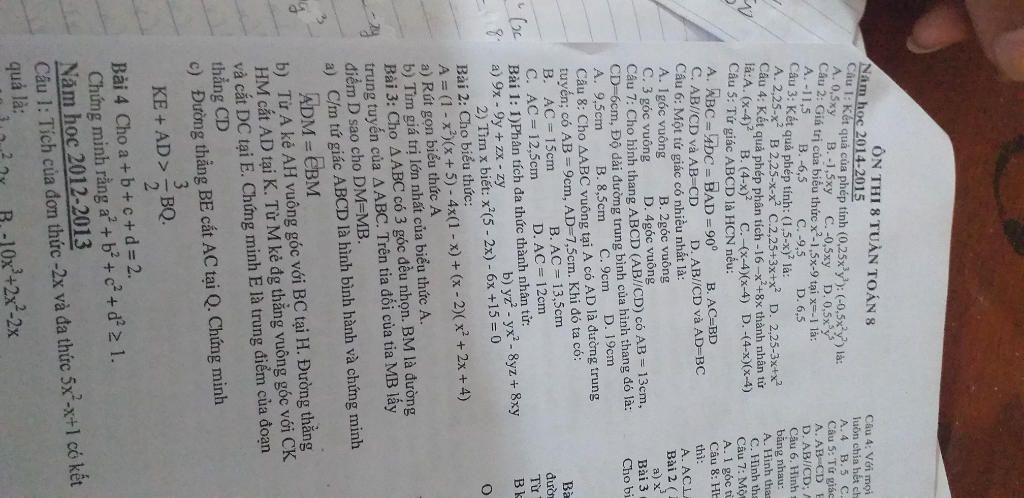 ÔN THI 8 TUẦN TOÁN 8
Năm học 2014-2015
Câu 1: Kết quả của phép tính (0,25x³y³):(-0,5x²y³) là:
A. 0,5xy B. -1,5xy C. -0,5xy D. 0,5
Câu 2: Giá trị của biểu thức x²-1,5x-9 tại x=-1 là:
A. -11,5 B. -6,5 C. -9,5 D. 6,5
Câu 3: Kết quả phép tính: (1,5-x)² là:
A. 2,25-x² B 2,25-x-x² C.2,25+3x+x² D. 2,25-3x+x²
Câu 4: Kết quả phép phân tích -16-x²+8x thành nhân tử
là:A. (x-4)² B. (4-x)² C. –(x-4)(x-4) D. (4-x)(x-4)
Câu 5: Tứ giác ABCD là HCN nếu:
A. ABC = ADC = BAD = 90° B. AC=BD
C. AB//CD và AB=CD D. AB//CD và AD=BC
Câu 6: Một tứ giác có nhiều nhất là:
A. 1góc vuông B. 2góc vuông
C. 3 góc vuông D. 4góc vuông
Câu 7: Cho hình thang ABCD (AB//CD) có AB = 13cm,
CD=6cm, Độ dài đường trung bình của hình thang đó là:
A. 9,5cm B. 8,5cm C. 9cm D. 19cm
Câu 8: Cho ∆ABC vuông tại A có AD là đường trung
tuyến; có AB = 9cm, AD=7,5cm. Khi đó ta có:
B. AC = 15cm B. AC = 13,5cm
C. AC = 12,5cm D. AC = 12cm
Bài 1: 1)Phân tích đa thức thành nhân tử:
a) 9x - 9y + zx - zy b) yz² - yx² - 8yz + 8xy
2) Tìm x biết: x²(5 - 2x) - 6x +15 = 0
Bài 2: Cho biểu thức:
A = (1 - x²)(x + 5) - 4x(1 - x) + (x - 2)(x² + 2x + 4)
a) Rút gọn biểu thức A
b) Tìm giá trị lớn nhất của biểu thức A.
Bài 3: Cho ∆ABC có 3 góc đều nhọn. BM là đường
trung tuyến của ∆ABC. Trên tia đối của tia MB lấy
điểm D sao cho DM=MB.
a) C/m tứ giác ABCD là hình bình hành và chứng minh
ADM = CBM
b) Từ A kẻ AH vuông góc với BC tại H. Đường thẳng
HM cắt AD tại K. Từ M kẻ đg thẳng vuông góc với CK
và cắt DC tại E. Chứng minh E là trung điểm của đoạn
thẳng CD
c) Đường thẳng BE cắt AC tại Q. Chứng minh
KE + AD > 3/2 BQ.
Bài 4 Cho a + b + c + d = 2.
Chứng minh rằng a² + b² + c² + d² ≥ 1.
Năm học 2012-2013
Câu 1: Tích của đơn thức -2x và đa thức 5x²-x+1 có kết
quả là:
B. -10x³+2x²-2x
Câu 4: Với mọi
luôn chia hết ch
A. 4 B. 5 C.
Câu 5: Tứ giác
A. AB=CD
D. AB//CD; A
Câu 6. Hình
bằng nhau:
A. Hình tha
C. Hình th
Câu 7: Mộ
A. 1 góc t
Câu 8: H
thì:
A. AC
Bài 2
a) x³
Bài 3
Cho bi
Bà
đườn
Từ
B k